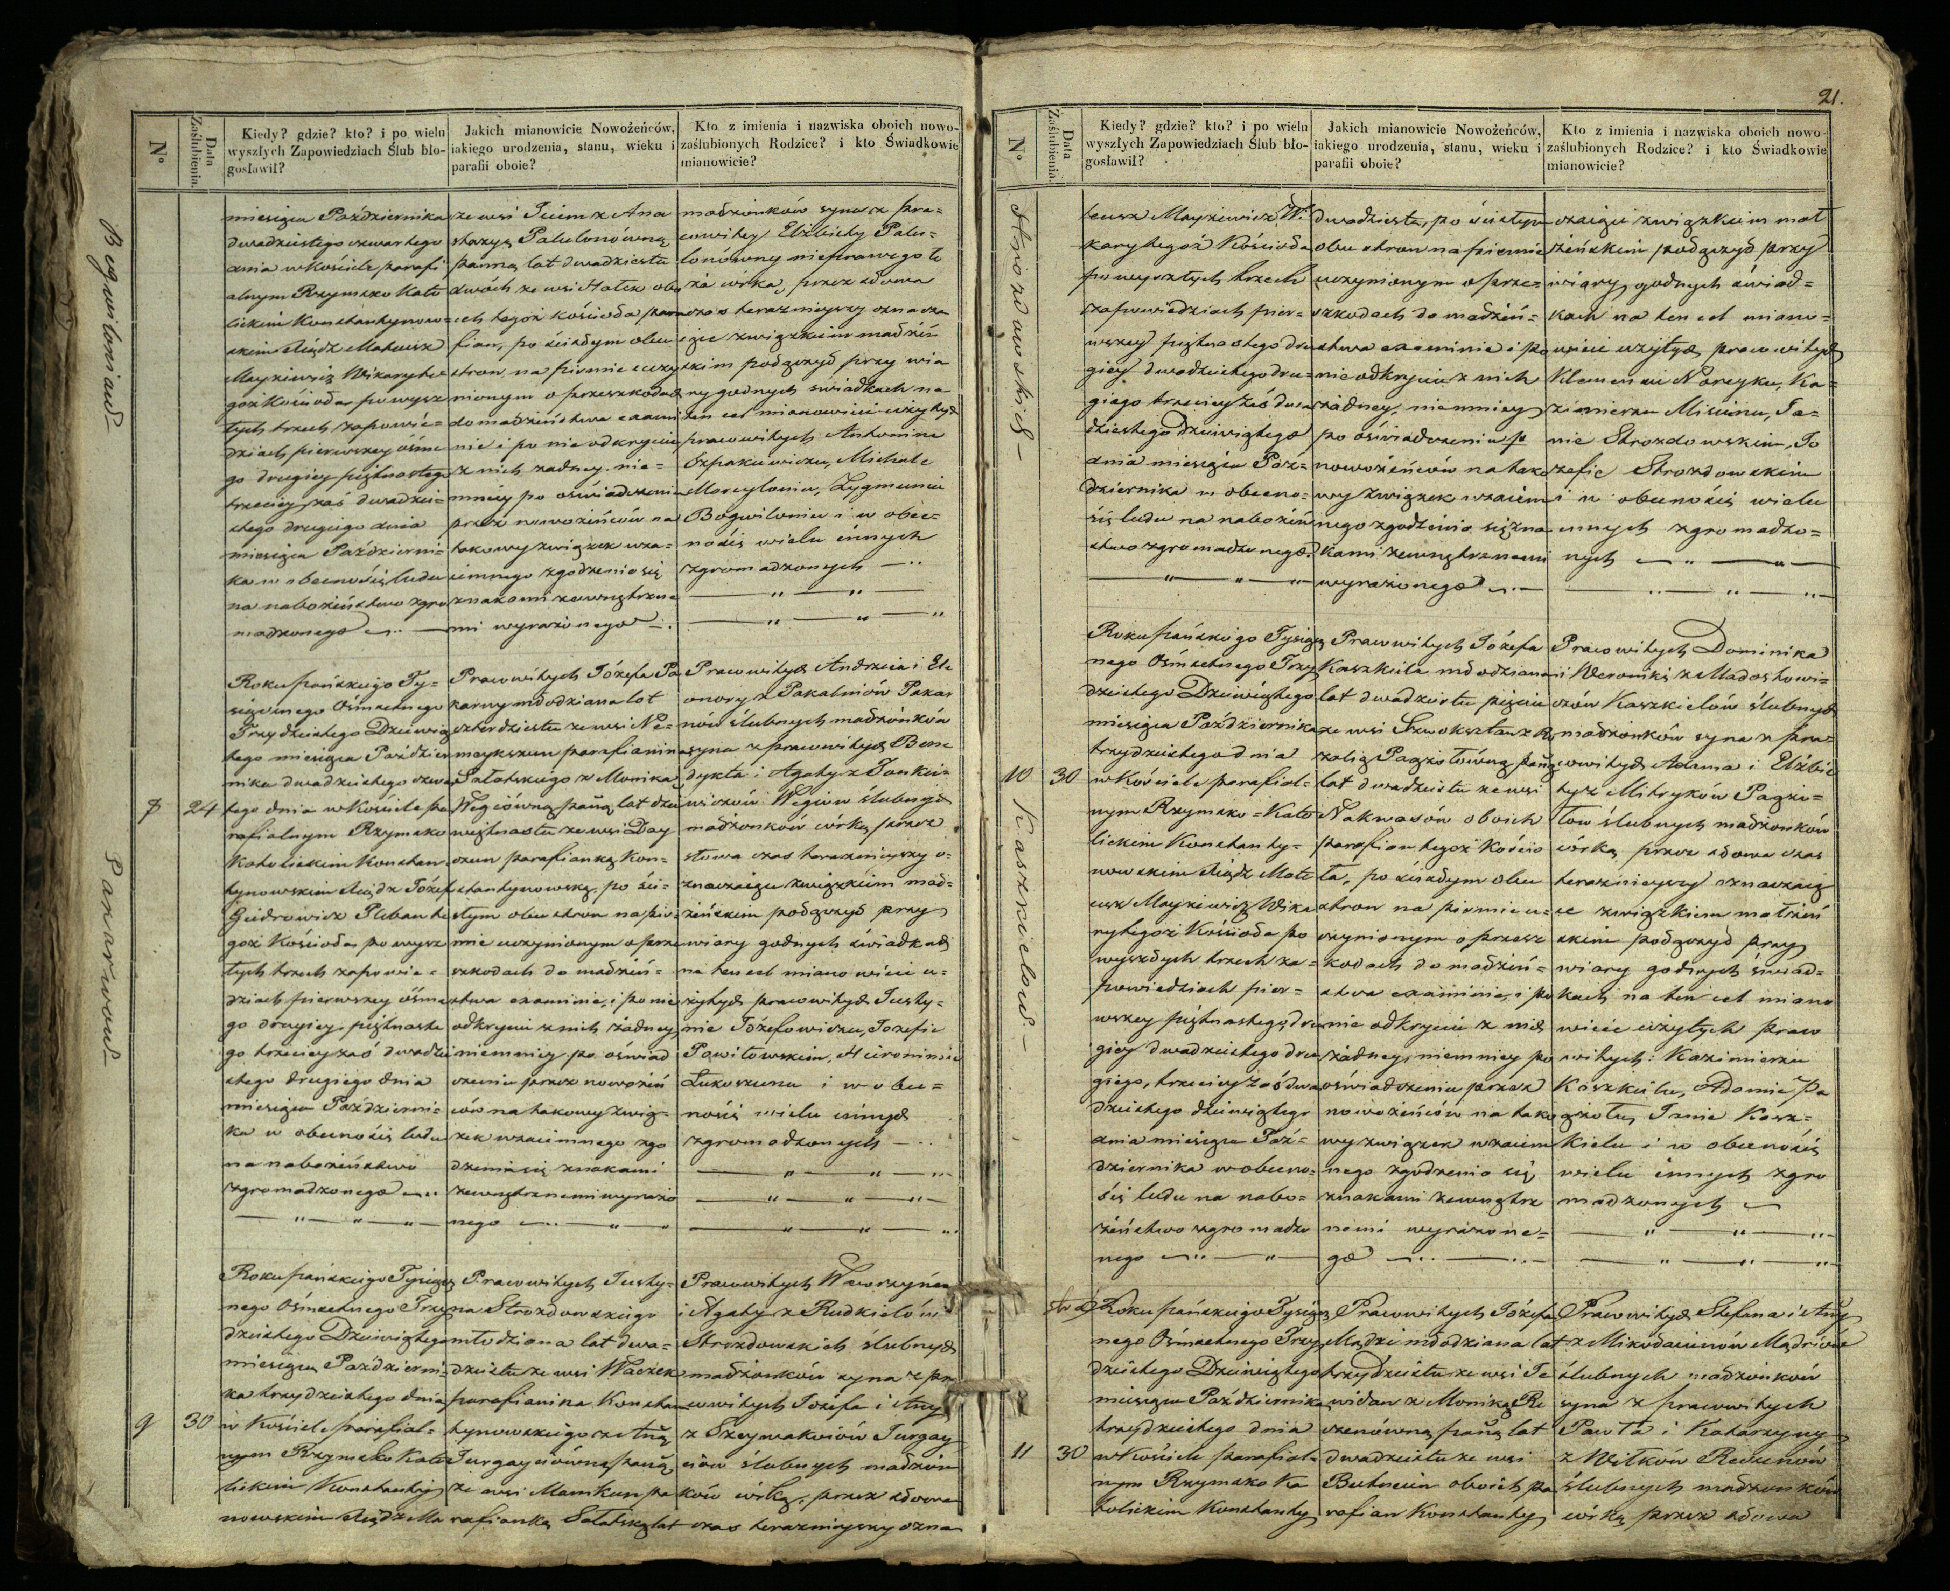 21.
N°
Data Zaślubienia.
Kiedy? gdzie? kto? i po wielu wyszłych Zapowiedziach Ślub błogosławił?
Jakich mianowicie Nowożeńców, jakiego urodzenia, stanu, wieku i parafii oboie?
Kto z imienia i nazwiska oboich nowozaślubionych Rodzice? i kto Świadkowie mianowicie?
miesiąca Października
dwadziestego czwartego
dnia w Kościele parafi
alnym Rzymsko Kato
lickim Konstantynow=
skim Xiądz Mateusz
Maykiewicz Wikary te
goż Kościoła po wysz
łych trzech zapowie=
dziach pierwszey ósme
go drugiey piętnastego
trzeciey zaś dwadzie=
stego drugiego dnia
miesiąca Październi=
ka w obecności ludu
na nabożeństwo zgro
madzonego
panną lat dwadziestu
fian, po ścisłym obu
stron na piśmie uczy
nionym o przeszkodach
do małżeństwa exami
nie i po nie odkryciu
z nich żadney nie=
mniey po oświadczeniu
przez nowożeńców na
takowy związek wza=
iemnego zgodzenia się
znakami zewnętrzne
mi wyrażonego
małżonków syna z pra=
cowitey Elżbiety Palu=
lonówny nieprawego ło
ża córką, przez słowa
czas teraznieyszy oznacza
iące związkiem małżeń
skim połączył przy wia
ry godnych świadkach na
ten cel mianowicie użytych
pracowitych Antonim
Michale
Zygmuncie
Bogwiłoniu i w obec=
ności wielu innych
zgromadzonych
8
24
Roku pańskiego Ty=
siącznego Ośmsetnego
Trzydziestego Dziewią
tego miesiąca Paździer
nika dwadziestego czwar
tego dnia w Kościele pa
rafialnym Rzymsko
Katolickim Konstan
tynowskim Xiądz Józef
Giedrowicz Pleban te
goż Kościoła po wysz
łych trzech zapowie=
dziach pierwszey ósme
go drugiey piętnaste
go trzeciey zaś dwadzie
stego drugiego dnia
miesiąca Październi=
ka w obecności ludu
na nabożeństwo
zgromadzonego
Pracowitych Józefa Pa
karny młodziana lat
czterdziestu ze wsi Ne=
Sałatskiego z Moniką
Węgiówną panną lat dzie
więtnastu ze wsi Day
parafianką Kon=
stantynowską, po ści=
słym obu stron na piś=
mie uczynionym o prze
szkodach do małżeń=
stwa examinie, i po nie
odkryciu z nich żadney
niemniey po oświad
czeniu przez nowożeń
ców na takowy zwią=
zek wzaiemnego zgo
dzenia się znakami
zewnętrznemi wyrażo
nego
Pracowitych Andrzeia i Ele
onory z Pakalniów Pakar
nów ślubnych małżonków
syna z pracowitych Bene
dykta i Agaty z Jankie=
wiczów Węgiów ślubnych
małżonków córką przez
słowa czas teraznieyszy o=
znaczaiące związkiem mał=
żeńskim połączył przy
wiary godnych świadkach
na ten cel mianowicie u=
żytych pracowitych Justy=
nie Józefowiczu, Jozefie
Powiłowskim, Hieronimie
Łukoszunu i w obec=
ności wielu innych
zgromadzonych
9
30
Roku pańskiego Tysiącz
nego Ośmsetnego Trzy
dziestego Dziewiątego
miesiąca Październi=
ka trzydziestego dnia
w Kościele parafial=
nym Rzymsko Kato
lickim Konstanty
nowskim Xiądz Ma
Pracowitych Justy=
na Strozdowskiego
młodziana lat dwa=
dziestu ze wsi Waczek
parafianina Konstan
tynowskiego z Anną
Jurgayciówną panną
ze wsi Mamkun pa
rafianką Sałatską lat
Pracowitych Wawrzyńca
i Agaty z Rudkielów
Strozdowskich ślubnych
małżonków syna z pra
cowitych Józefa i Anny
z Szeymakoiów Jurgay
ciów ślubnych małżon
ków córką, przez słowa
czas teraznieyszy ozna
Bogwiłoniów
Pakarnów
N°
Data Zaślubienia.
Kiedy? gdzie? kto? i po wielu wyszłych Zapowiedziach Ślub błogosławił?
Jakich mianowicie Nowożeńców, jakiego urodzenia, stanu, wieku i parafii oboie?
Kto z imienia i nazwiska oboich nowozaślubionych Rodzice? i kto Świadkowie mianowicie?
Strozdowskich
teusz Maykiewicz Wi
kary tegoż Kościoła
po wyszłych trzech
zapowiedziach pier=
wszey piętnastego dru
giey dwadziestego dru=
giego trzeciey zaś dwa
dziestego dziewiątego
dnia miesiąca Paź=
dziernika w obecno=
ści ludu na nabożeń
stwo zgromadzonego
dwadziestu, po ścisłym
obu stron na piśmie
uczynionym o prze=
szkodach do małżeń=
stwa examinie i po
nie odkryciu z nich
żadney, niemniey
po oświadczeniu p
nowożeńców na tako
wy związek wzaiem
nego zgodzenia się zna
kami zewnętrznemi
wyrażonego
czaiące związkiem mał
żeńskim połączył przy
wiary godnych świad=
kach na ten cel miano=
wicie użytych pracowitych
Klemensu Noreyku, Ka=
zimierzu Misiunu, Ja=
nie Strozdowskim, Jo
zefie Strozdowskim
i w obecności wielu
innych zgromadzo=
nych
10
30
Kaszkielów
Roku pańskiego Tysiącz
nego Ośmsetnego Trzy
dziestego Dziewiątego
miesiąca Października
trzydziestego dnia
w Kościele parafial=
nym Rzymsko=Kato
lickim Konstanty=
nowskim Xiądz Mate
usz Maykiewicz Wika
ry tegoż Kościoła po
wyszłych trzech za=
powiedziach pier=
wszey piętnastego, dru
giey dwadziestego dru
giego, trzeciey zaś dwa
dziestego dziewiątego
dnia miesiąca Paź=
dziernika w obecno=
ści ludu na nabo=
żeństwo zgromadzo
nego
Pracowitych Józefa
Kaszkiela młodziana
lat dwadziestu pięciu
ze wsi Szwoksztan z Ro
zalią Pagżołówną panną
lat dwadziestu ze wsi
Nakwasów oboich
parafian tegoż Kościo
ła, po ścisłym obu
stron na piśmie u=
czynionym o przesz
kodach do małżeń=
stwa examinie, i po
nie odkryciu z nich
żadney, niemniey po
oświadczeniu przez
nowożeńców na tako
wy związek wzaiem
nego zgodzenia się
znakami zewnętrz
nemi wyrażone=
go
Pracowitych Dominika
i Weroniki z Madoszkowi=
czów Kaszkielów ślubnych
małżonków syna z pra=
cowitych Adama i Elżbie
ty z Mitryków Pagżo=
łow ślubnych małżonków
córką, przez słowa czas
teraznieyszy oznaczaią
ce związkiem małżeń
skim połączył przy
wiary godnych świad=
kach na ten cel miano
wicie użytych praco
witych: Kazimierzu
Kaszkielu, Adamie Pa
gżołu, Janie Kasz=
kielu i w obecności
wielu innych zgro
madzonych
11
30
Roku pańskiego Tysiącz
nego Ośmsetnego Trzy
dziestego Dziewiątego
miesiąca Października
trzydziestego dnia
w Kościele parafial=
nym Rzymsko Ka
tolickim Konstanty
Pracowitych Józefa
młodziana lat
trzydziestu ze wsi Je
widan z Moniką Re
czenówną panną lat
dwadziestu ze wsi
Butneun oboich pa
rafian Konstanty
Pracowitych Stefana i Anny
z Mikołaiunów Mądrów
ślubnych małżonków
syna z pracowitych
Pawła i Katarzyny
z Witków Recunów
ślubnych małżonków
córką przez słowa